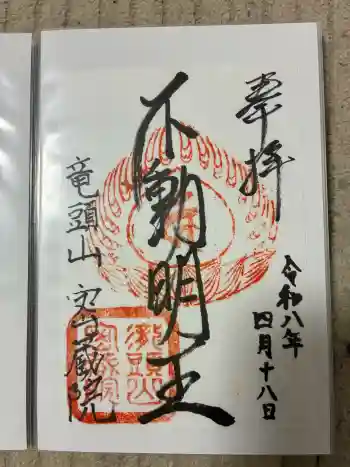 奉拝
令和八年
四月十八日
不動明王
竜頭山 密蔵院